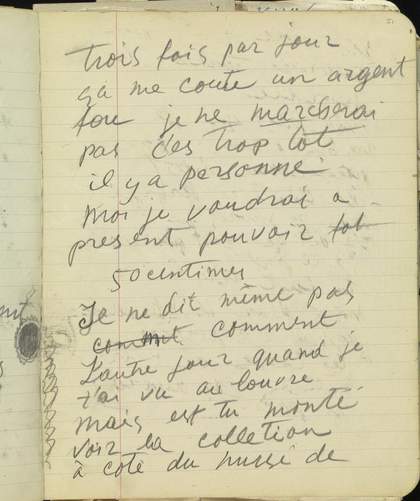 trois fois par jour
ça me coute un argent
fou je ne marcherai
pas c'es trop tot
il y a personne
moi je voudrai a
present pouvoir
50 centimes
Je ne dit même pas
comment
L'autre jour quand je
t'ai vu au louvre
mais est tu monté
voir la colletion
à coté du mussé de